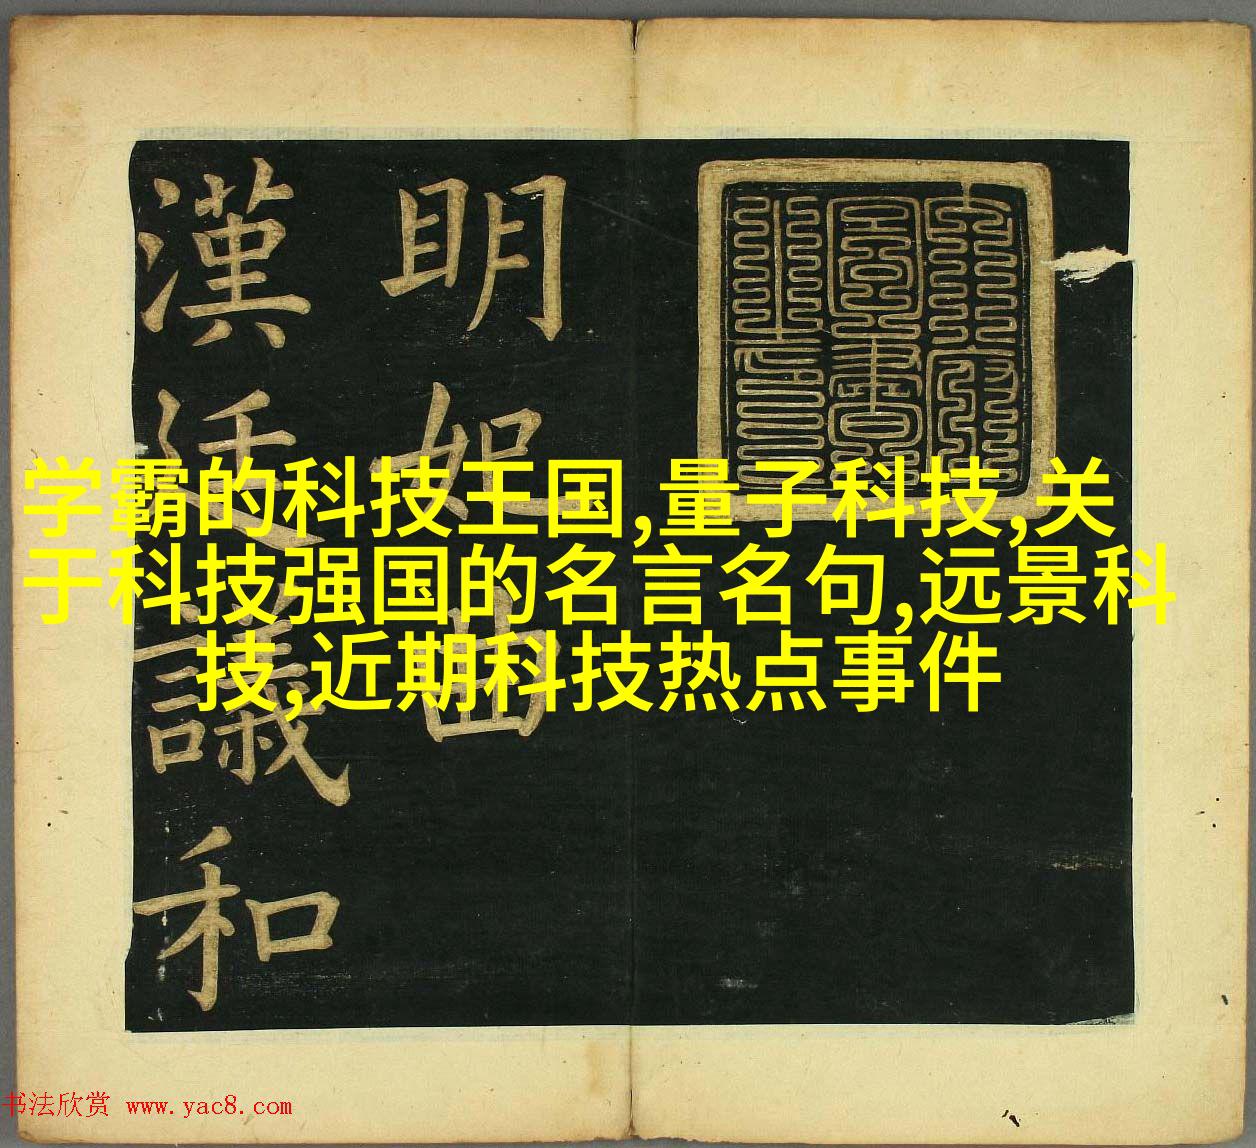 明妃曲
漢廷議和
学霸的科技王国,量子科技,关
于科技强国的名言名句,远景科
技,近期科技热点事件
书法欣赏 www.yac8.com